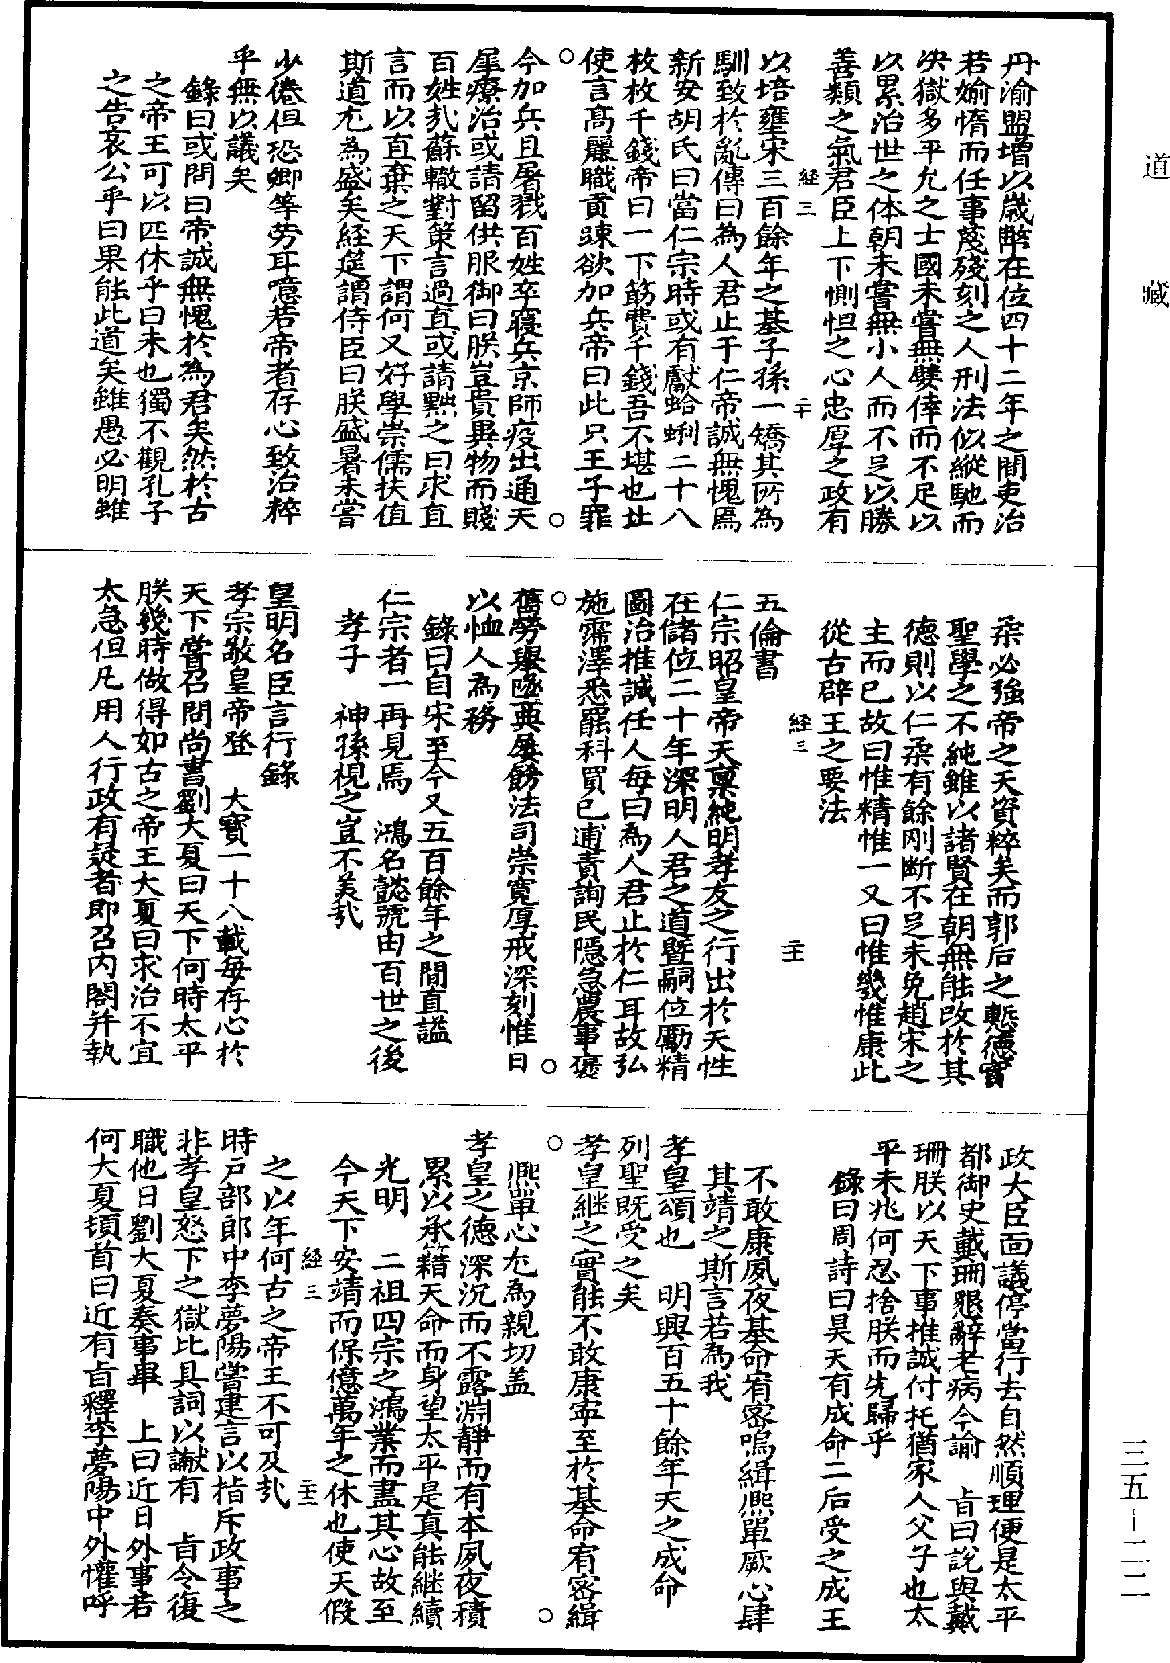 道藏
丹渝盟增以歲幣在位四十二年之間吏治
若婾惰而任事蔑殘刻之人刑法似縱馳而
决獄多平允之士國未嘗無嬖倖而不足以
以累治世之体朝未嘗無小人而不足以勝
善類之氣君臣上下惻怛之心忠厚之政有
経三 二十
以培壅宋三百餘年之基子孫一矯其所為
馴致於亂傳曰為人君止于仁帝誠無愧焉
新安胡氏曰當仁宗時或有獻蛤蜊二十八
枚枚千錢帝曰一下筯費千錢吾不堪也㘰
使言高麗職貢踈欲加兵帝曰此只王子罪
○
今加兵且屠戮百姓卒寢兵京師疫出通天
犀療治或請留供服御曰朕豈貴異物而賤
百姓㢤蘇轍對策言過直或請黜之曰求直
言而以直棄之天下謂何又好學崇儒扶值
斯道尤為盛矣経筵謂侍臣曰朕盛暑未嘗
少倦但恐卿等劳耳噫若帝者存心致治粹
乎無以議矣
錄曰或問曰帝誠無愧於為君矣然於古
之帝王可以匹休乎曰未也獨不觀孔子
之告哀公乎曰果能此道矣雖愚必明雖
柔必強帝之天資粹矣而郭后之慙德寔
聖學之不純雖以諸賢在朝無能改於其
德則以仁柔有餘刚断不足未免趙宋之
主而已故曰惟精惟一又曰惟幾惟康此
從古辟王之要法
経三 二十一
五倫書
仁宗昭皇帝天稟純明孝友之行出於天性
在儲位二十年深明人君之道暨嗣位勵精
圖治推誠任人每曰為人君止於仁耳故弘
施霈澤悉罷科買已逋責詢民隱急農事褒
○
舊勞舉墜典屡飭法司崇寬厚戒深刻惟日
以恤人為務
錄曰自宋至今又五百餘年之間直謚
仁宗者一再見焉 鴻名懿號由百世之後
孝子 神孫視之豈不美㢤
皇明名臣言行錄
孝宗敬皇帝登 大寶一十八載每存心於
天下嘗召問尚書劉大夏曰天下何時太平
朕幾時做得如古之帝王大夏曰求治不宜
太急但凡用人行政有疑者即召内閣并執
政大臣面議停當行去自然順理便是太平
都御史戴珊懇辭老病今諭 旨曰說與戴
珊朕以天下事推誠付托猶家人父子也太
平未兆何忍捨朕而先歸乎
錄曰周詩曰昊天有成命二后受之成王
不敢康夙夜基命宥密嗚緝熙單厥心肆
其靖之斯言若為我
孝皇頌也 明興百五十餘年天之成命
列聖既受之矣
孝皇継之實能不敢康寕至於基命宥密緝
○
熙單心尤為親切盖
孝皇之德深沉而不露淵靜而有本夙夜積
累以承籍天命而身望太平是真能継續
光明 二祖四宗之鴻業而盡其心故至
今天下安靖而保億萬年之休也使天假
経三 二十二
之以年何古之帝王不可及㢤
時戸部郎中李夢陽嘗建言以指斥政事之
非孝皇怒下之獄比具詞以讞有 旨令復
職他日劉大夏奏事畢 上曰近日外事若
何大夏頓首曰近有旨釋李夢陽中外懽呼
三五-一二二